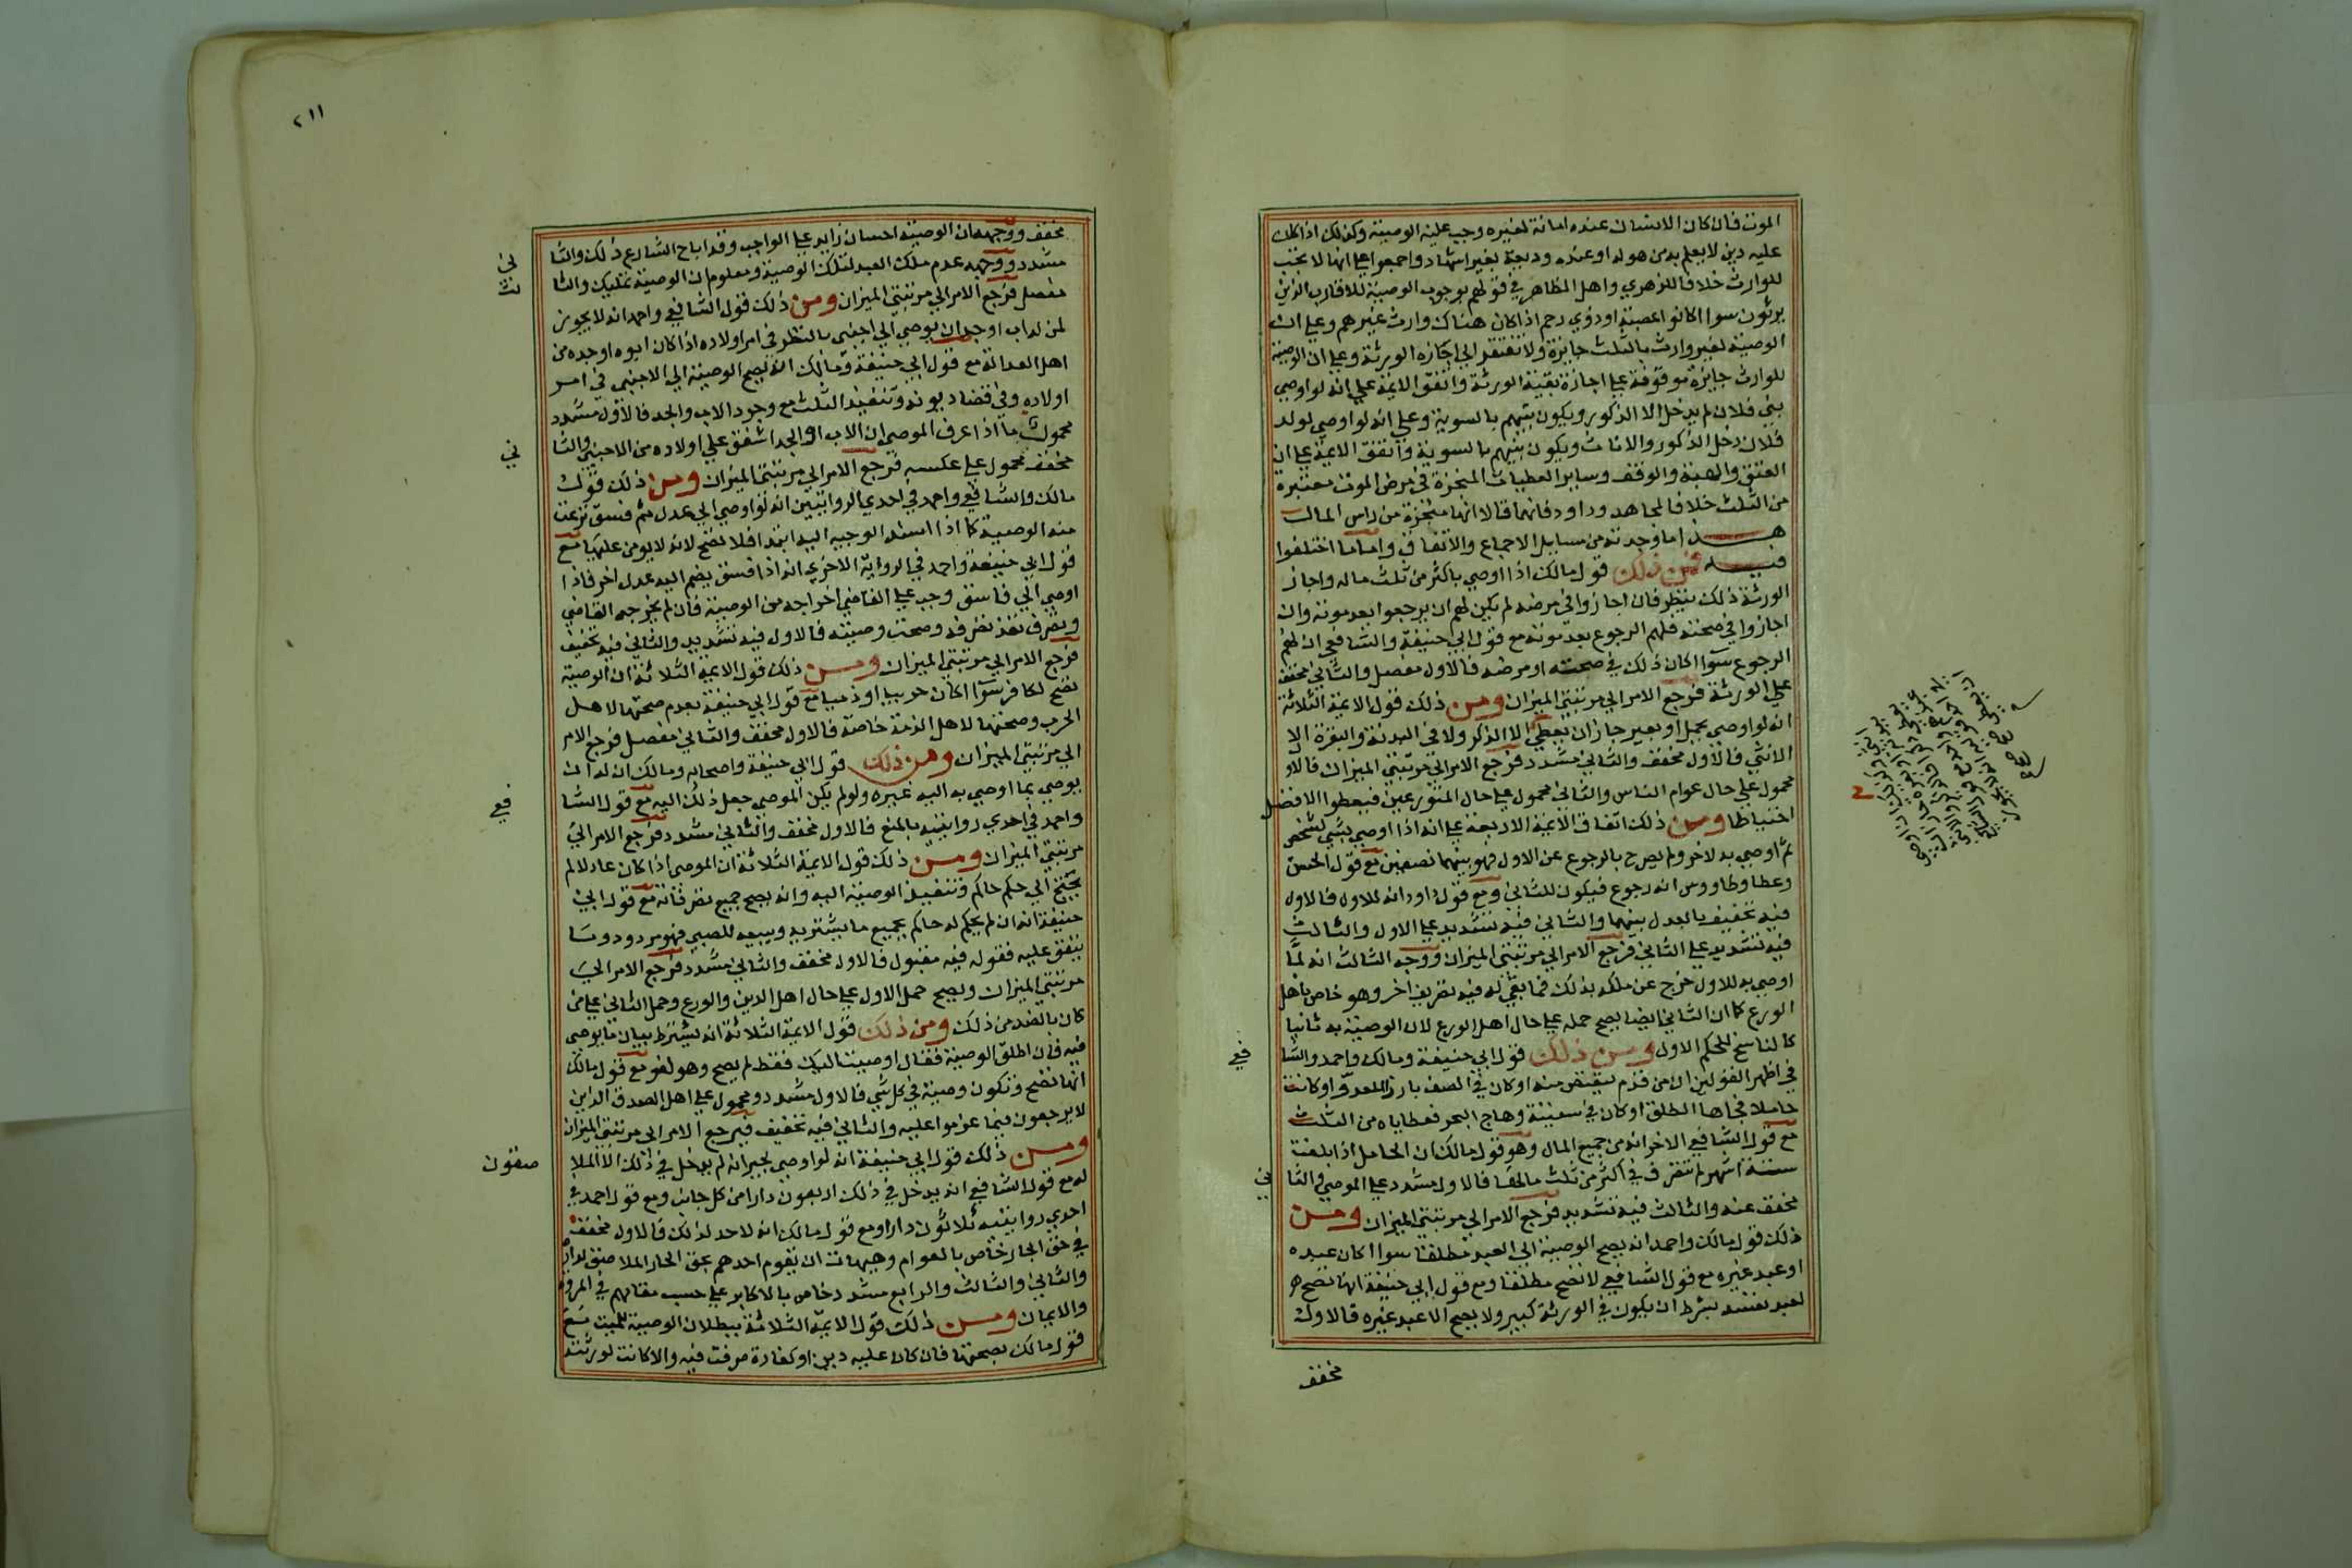 الموت فان كان الانسان عنده امانة لغيره وجب عليه الوصية وكذلك اذا كان
عليه دين لا يعلم به من هو له او عنده وديعة بغير اشهاد واجمعوا على انها لا تجب
للوارث خلافا للزهري واهل الظاهر في قولهم بوجوب الوصية للاقارب الذين
يرثون سوا كانوا عصبة او ذوي رحم اذا كان هناك وارث غيرهم وعلى ان
الوصية لغير وارث بالثلث جايزة ولا تفتقر الى اجازة الورثة وعلى ان الوصية
للوارث جايزة موقوفة على اجازة بقية الورثة واتفق الايمة على انه لو اوصى
بني فلان لم يدخل الا الذكور ويكون بينهم بالسوية وعلى انه لو اوصى لولد
فلان دخل الذكور والاناث ويكون بينهم بالسوية واتفق الايمة على ان
العتق والهبة والوقف وساير العطيات المنجزة في مرض الموت معتبرة
من الثلث خلافا لمجاهد وداود فانهما قالا انها منجزة من راس المال
هذا ما وجدته من مسايل الاجماع والاتفاق واما ما اختلفوا
فيه فمن ذلك قول مالك اذا اوصى باكثر من ثلث ماله واجاز
الورثة ذلك ينظر فان اجازوا في مرضه لم يكن لهم ان يرجعوا بعد موته وان
اجازوا في صحته فلهم الرجوع بعد موته مع قول ابي حنيفة والشافعي ان لهم
الرجوع سوا اكان ذلك في صحته او مرضه فالاول مفصل والثاني مخفف
على الورثة فرجع الامر الى مرتبتي الميزان ومن ذلك قول الايمة الثلاثة
انه لو اوصى بجمل او بعير جاز ان يعطي الا الذكر ولا في البدنة والبقرة الا
الانثى فالاول مخفف والثاني مشدد فرجع الامر الى مرتبتي الميزان فالاو
محمول على حال عوام الناس والثاني محمول على حال المتورعين فيعطوا الافضل
احتياطا ومن ذلك اتفاق الايمة الاربعة على انه اذا اوصى بشي لشخص
ثم اوصى به لاخر ولم يصرح بالرجوع عن الاول فهو بينهما نصفين مع قول الحسن
وعطا وطاووس انه رجوع فيكون للثاني ومع قول داود انه للاول فالاول
فيه تخفيف بالعدل بينهما والثاني فيه تشديد على الاول والثالث
فيه تشديد على الثاني فرجع الامر الى مرتبتي الميزان ووجه الثالث انه لما
اوصى به للاول خرج عن ملكه بذلك فما بقي له فيه تصريف اخر وهو خاص باهل
الورع كما ان الثاني ايضا يصح حمله على حال اهل الورع لان الوصية به ثانيا
كالناسخ للحكم الاول ومن ذلك قول ابي حنيفة ومالك واحمد والشا
فعي
في اظهر القولين ان من قدم ليقتص منه او كان في الصف بارز العدو او كانت
حاملا فجاها الطلق او كان في سفينة وهاج البحر فعطاياه من الثلث
مع قول الشافعي الاخر انه من جميع المال وهو قول مالك ان الحامل اذا بلغت
ستة اشهر لم تتصرف في اكثر من ثلث مالها فالاول مشدد على الموصي والثا
ني
مخفف عنه والثالث فيه تشديد فرجع الامر الى مرتبتي الميزان ومن
ذلك قول مالك واحمد انه يصح الوصية الى العبد مطلقا سوا اكان عبده
او عبد غيره مع قول الشافعي لا تصح مطلقا ومع قول ابي حنيفة انها تصح
لعبد نفسه بشرط ان يكون في الورثة كبير ولا يصح الا عبد غيره فالاول
مخفف
٢١١
مخفف ووجهه ان الوصية احسان زايد على الواجب وقد اباح الشارع ذلك والثا
ني
مشدد ووجهه عدم ملك العبد لتلك الوصية ومعلوم ان الوصية تمليك والثا
لث
مفصل فرجع الامر الى مرتبتي الميزان ومن ذلك قول الشافعي واحمد انه لا يجوز
لمن له اب او جد ان يوصي الى اجنبي بالنظر في امر اولاده اذا كان ابوه او جده من
اهل العدالة مع قول ابي حنيفة ومالك انه تصح الوصية الى الاجنبي في امر
اولاده وفي قضا ديونه وتنفيذ الثلث مع وجود الاب والجد فالاول مشدد
محمول ما اذا عرف الموصي ان الاب او الجد اشفق على اولاده من الاجنبي والثا
ني
مخفف محمول على عكسه فرجع الامر الى مرتبتي الميزان ومن ذلك قول
مالك والشافعي واحمد في احدي الروايتين انه لو اوصى الى عدل ثم فسق نزعت
منه الوصية كما اذا اسند الوصية اليه ابتدا فلا تصح لانه لا يومن عليها مع
قول ابي حنيفة واحمد في الرواية الاخري انه اذا فسق يضم اليه عدل اخر فاذا
اوصى الى فاسق وجب على القاضي اخراجه من الوصية فان لم يخرجه القاضي
وتصرف نفذ تصرفه وصحت وصيته فالاول فيه تشديد والثاني فيه تخفيف
فرجع الامر الى مرتبتي الميزان ومن ذلك قول الايمة الثلاثة ان الوصية
تصح لكافر سوا اكان حربيا او ذميا مع قول ابي حنيفة بعدم صحتها لاهل
الحرب وصحتها لاهل الذمة خاصة فالاول مخفف والثاني مفصل فرجع الامر
الى مرتبتي الميزان ومن ذلك قول ابي حنيفة واصحابه ومالك ان له ان
يوصي بما اوصي به اليه غيره ولو لم يكن الموصي جعل ذلك اليه مع قول الشا
فعي
واحمد في احدي روايتيه بالمنع فالاول مخفف والثاني مشدد فرجع الامر الى
مرتبتي الميزان ومن ذلك قول الايمة الثلاثة ان الموصى اذا كان عادلا لم
يحتج الى حكم حاكم وتنفيذ الوصية اليه وانه يصح جميع تصرفاته مع قول ابي
حنيفة انه ان لم يحكم له حاكم بجميع ما يشتريه ويبيعه للصبي فهو مردود وما
ينفق عليه فقوله فيه مقبول فالاول مخفف والثاني مشدد فرجع الامر الى
مرتبتي الميزان ويصح حمل الاول على حال اهل الدين والورع وحمل الثاني على من
كان بالضد من ذلك ومن ذلك قول الايمة الثلاثة انه يشترط بيان ما يوصي
فيه فان اطلق الوصية فقال اوصيت اليك فقط لم يصح وهو لغو مع قول مالك
انها تصح وتكون وصية في كل شي فالاول مشدد ومحمول على اهل الصدق الذين
لا يرجعون فيما عزموا عليه والثاني فيه تخفيف فيرجع الامر الى مرتبتي الميزان
ومن ذلك قول ابي حنيفة انه لو اوصى لجيرانه لم يدخل في ذلك الا الملا
صقون
له مع قول الشافعي انه يدخل في ذلك اربعون دارا من كل جانب ومع قول احمد في
احدي روايتيه ثلاثون دارا ومع قول مالك انه لا حد لذلك فالاول مخفف
في حق الجار خاص بالعوام وجيهات ان يقوم احدهم بحق الجار الملاصق لداره
والثاني والثالث والرابع مشدد خاص بالاكابر على حسب مقامهم في المروة
والايمان ومن ذلك قول الايمة الثلاثة ببطلان الوصية للميت مع
قول مالك بصحتها فان كان عليه دين او كفارة صرفت فيه والا كانت لورثته